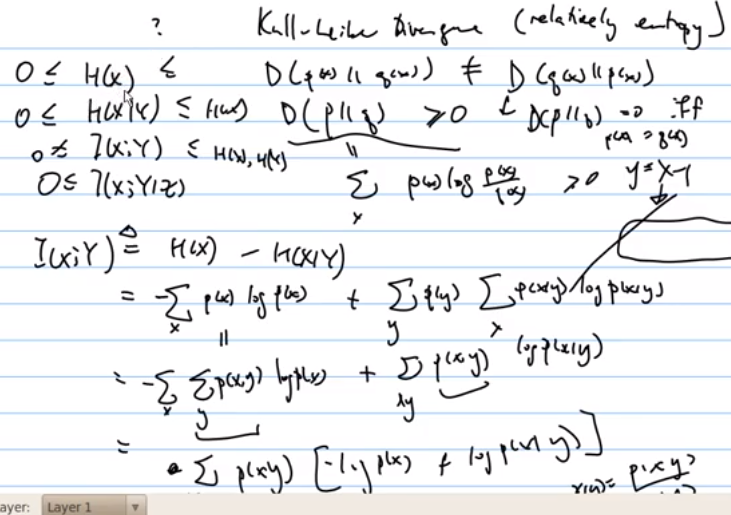 ?
Kull-Leibe Divergence (relatively entropy)
0 ≤ H(x) ≤
D(p(x) || q(x)) ≠ D(q(x) || p(x))
0 ≤ H(x|Y) ≤ H(x)
D(p || q) ≥ 0
D(p || q) = 0 iff
p(x) = q(x)
0 ≤ I(x;Y) ≤ H(x), H(Y)
0 ≤ I(x;Y|z)
∑x p(x) log p(x)/q(x) ≥ 0
y = x-1
I(x;Y) ≜ H(x) - H(x|Y)
= -∑x p(x) log p(x) + ∑y p(y) ∑x p(x|y) log p(x|y)
= -∑x ∑y p(x,y) log p(x) + ∑xy p(x,y) log p(x|y)
= ∑ p(xy) [-log p(x) + log p(x|y)]
ayer: Layer 1